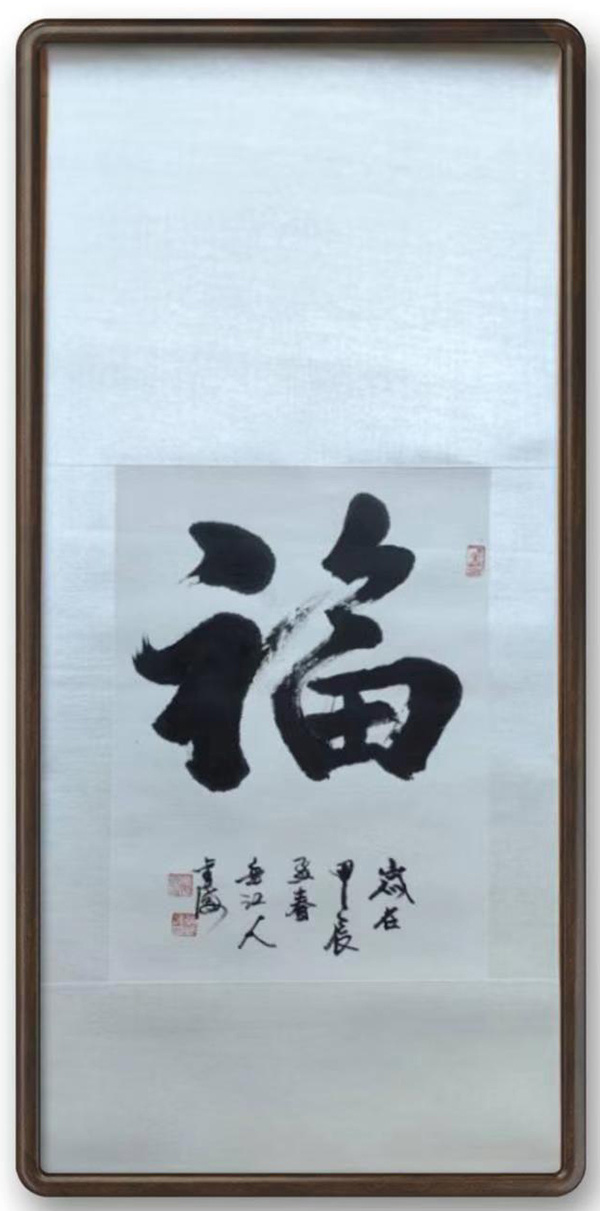 福
歲在
甲辰
孟春
岳江人